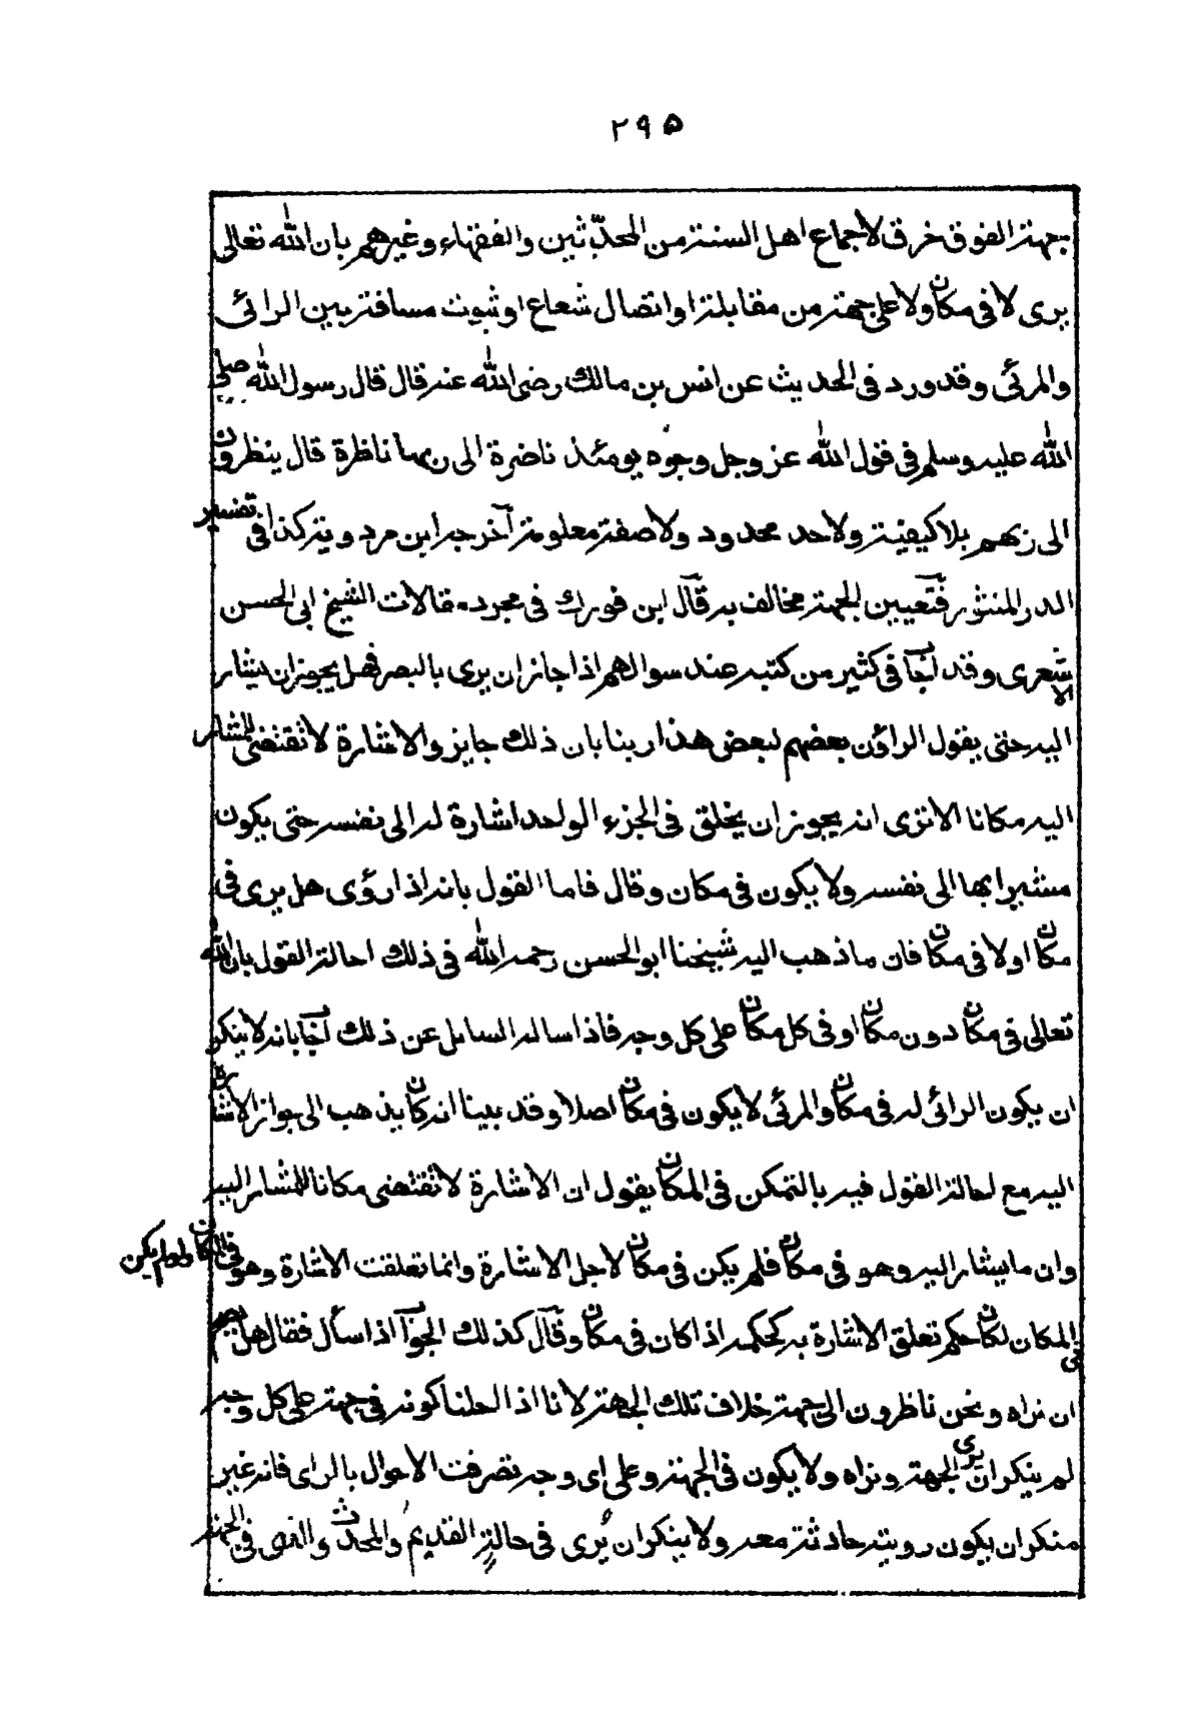 ۲۹۵
جهة الفوق خرق لاجماع اهل السنة من المحدّثين والفقهاء وغيرهم بان الله تعالى
يرى لا فى مكان ولا على جهة من مقابلة او اتصال شعاع او ثبوت مسافة بين الرائى
والمرئى وقد ورد فى الحديث عن انس بن مالك رضى الله عنه قال قال رسول الله صلى
الله عليه وسلم فى قول الله عز وجل وجوه يومئذ ناضرة الى ربها ناظرة قال ينظرون
الى ربهم بلا كيفية ولا حد محدود ولا صفة معلومة آخرجه ابن مردويه كذا فى تفسير
الدر المنثور فتعيين الجهة مخالف به قال ابن فورك فى مجرد مقالات الشيخ ابى الحسن
الاشعرى وقد اجاب فى كثير من كتبه عند سوالهم اذا جاز ان يرى بالبصر فهل يجوز ان يشار
اليه حتى يقول الراؤن بعضهم لبعض هذا ربنا بان ذلك جايز والاشارة لا تقتضى للمشار
اليه مكانا الا ترى انه يجوز ان يخلق فى الجزء الواحد اشارة له الى نفسه حتى يكون
مشيرا بها الى نفسه ولا يكون فى مكان وقال فاما القول بانه اذا رؤى هل يرى فى
مكان او لا فى مكان فان ما ذهب اليه شيخنا ابو الحسن رحمه الله فى ذلك احالة القول بان الله
تعالى فى مكان دون مكان او فى كل مكان على كل وجه فاذا ساله السايل عن ذلك اجاب بانه لا ينكر
ان يكون الرائى له فى مكان والمرئى لا يكون فى مكان اصلا وقد بينا انه كان يذهب الى جواز الاشارة
اليه مع احالة القول فيه بالتمكن فى المكان يقول ان الاشارة لا تقتضى مكانا للمشار اليه
وان ما يشار اليه وهو فى مكان فلم يكن فى مكان لاجل الاشارة وانما تعلقت الاشارة وهو فى المكان ولو لم يكن
فى المكان لكان حكم تعلق الاشارة به كحكمه اذا كان فى مكان وقال كذلك الجواب اذا سأل فقال هل يصح
ان نراه ونحن ناظرون الى جهة خلاف تلك الجهة لانا اذا احلنا كونه فى جهة على كل وجه
لم ينكر ان يرى الجهة ونراه ولا يكون فى الجهة وعلى اى وجه تصرفت الاحوال بالراى فانه غير
منكر ان يكون رويته حادثة معه ولا ينكر ان يُرى فى حالةٍ القديمُ والمحدث والذى فى الجهة